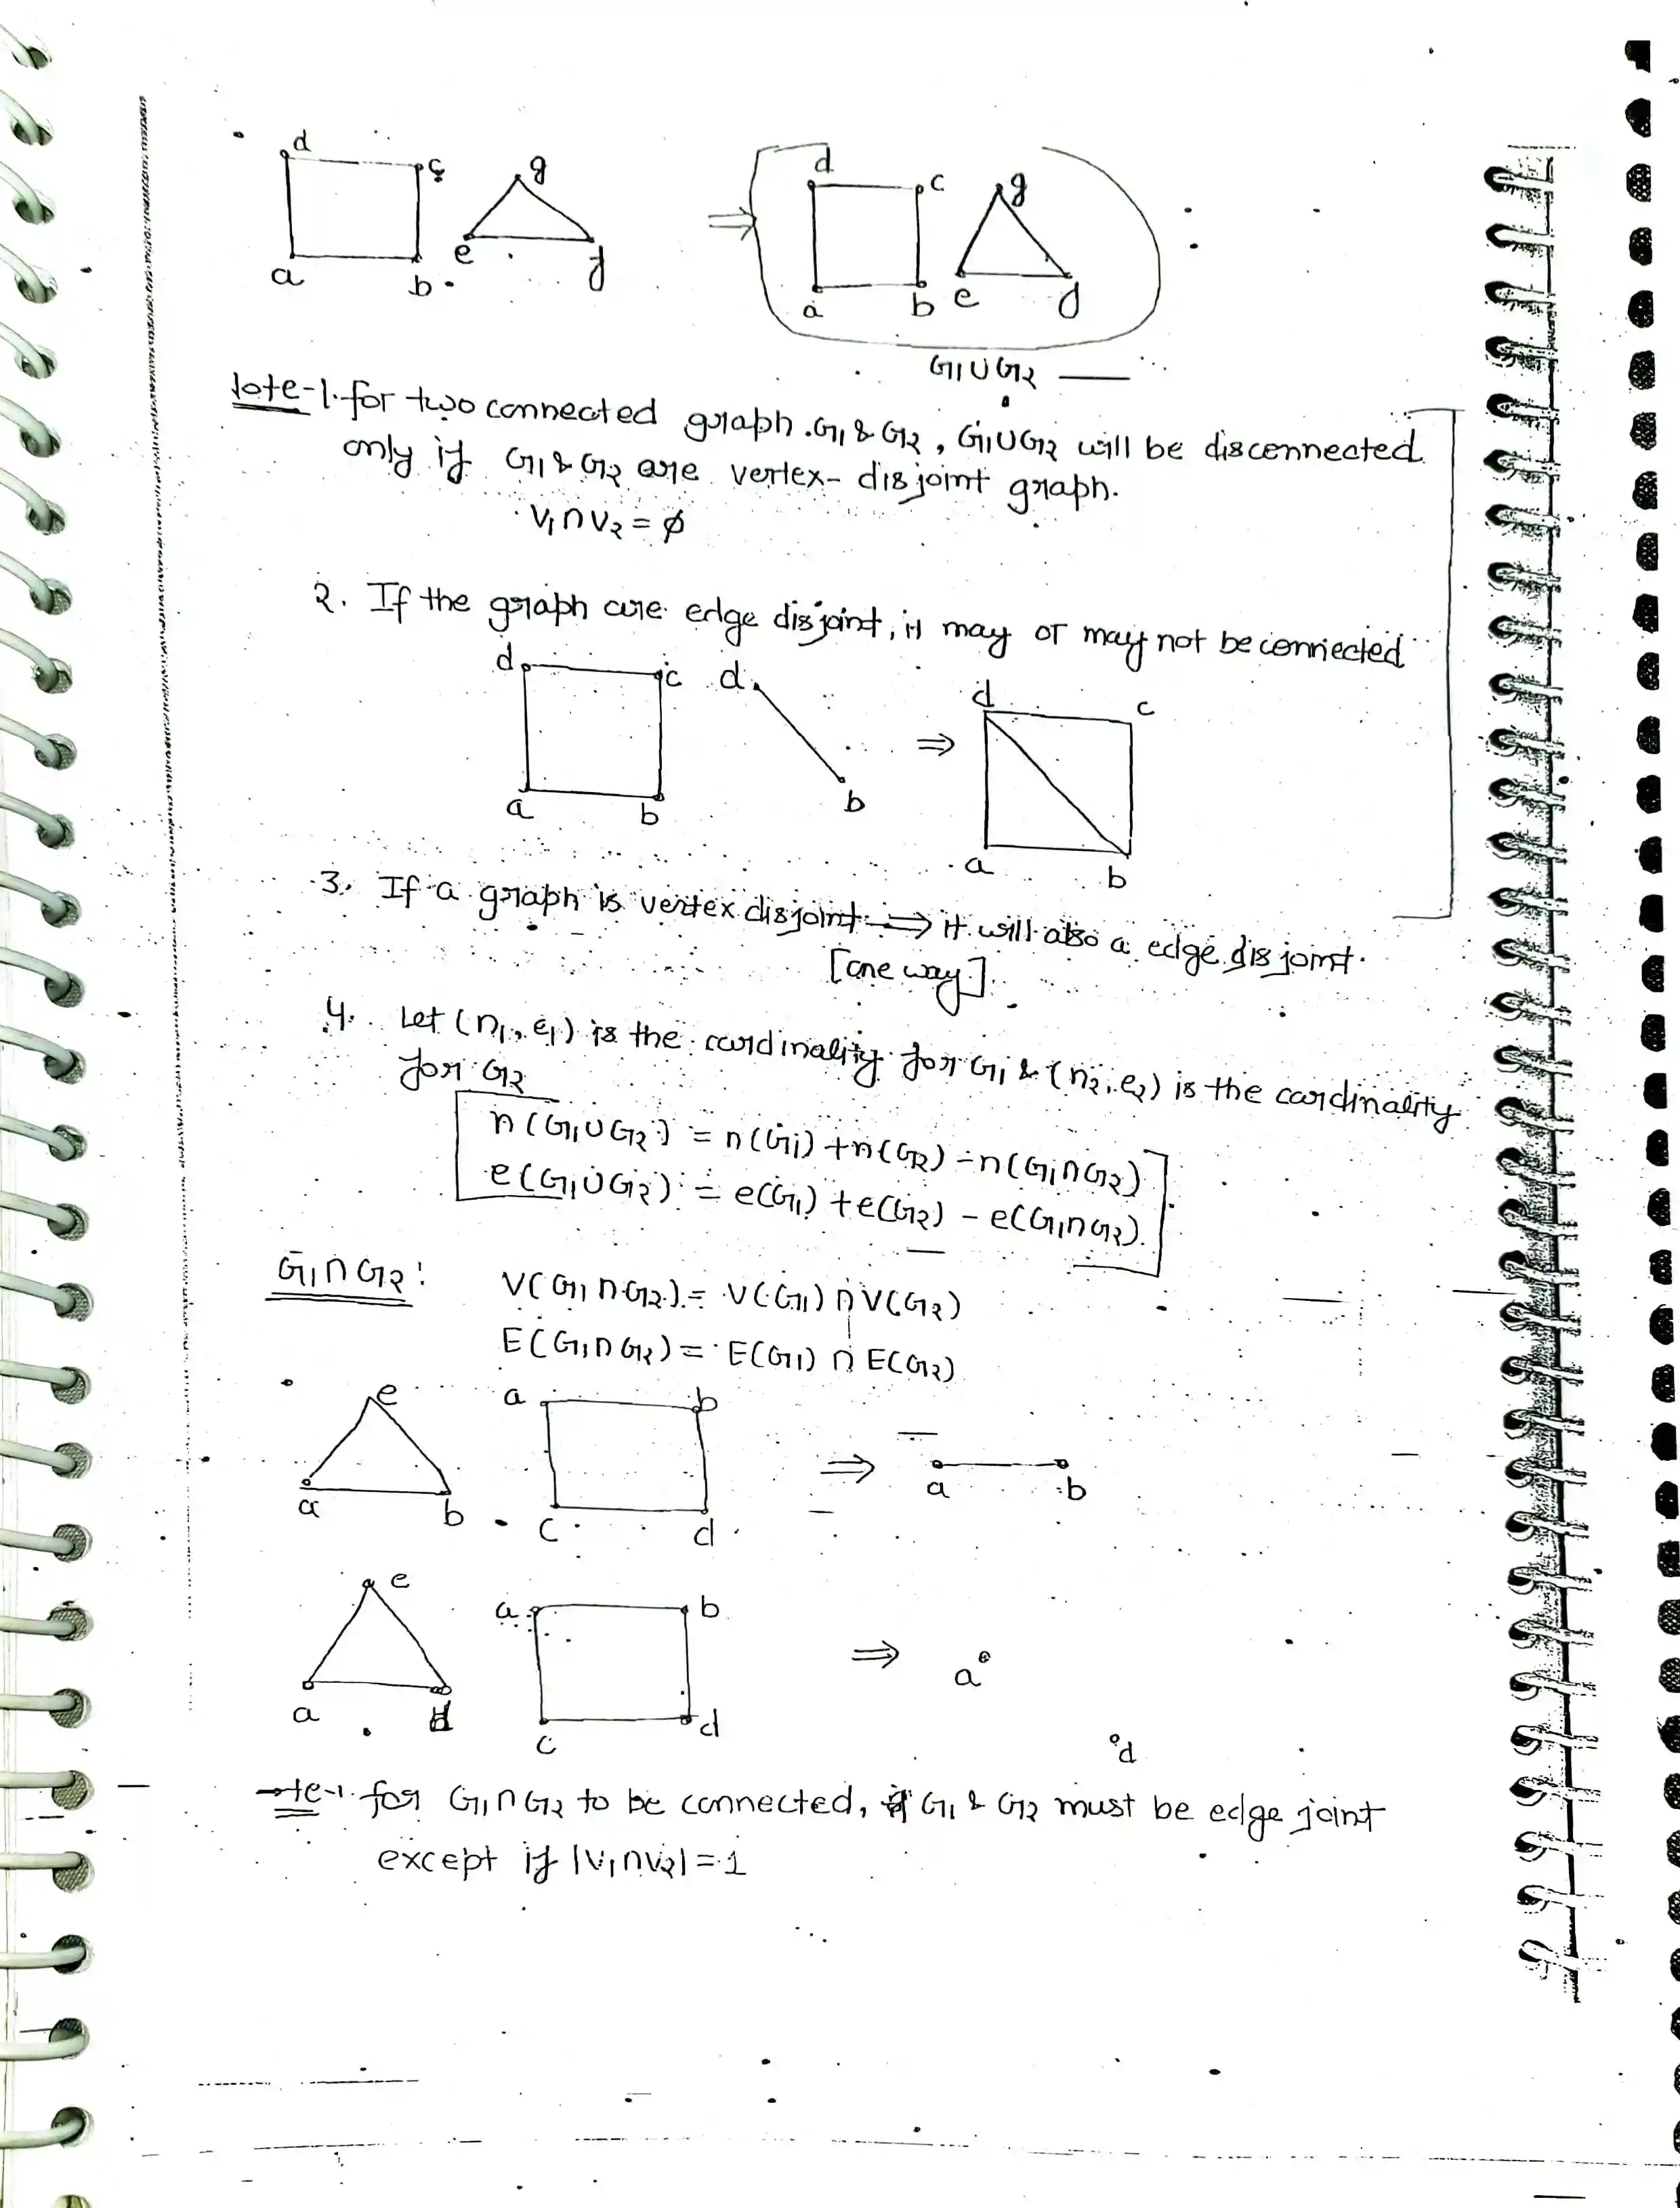 d c g d c g
a b e f a b e f
G1 ∪ G2
Note-1. for two connected graph G1 & G2, G1∪G2 will be disconnected
only if G1 & G2 are vertex-disjoint graph.
V1 ∩ V2 = ϕ
2. If the graph are edge disjoint, it may or may not be connected
d c d d c
a b b a b
3. If a graph is vertex disjoint ⟹ it will also a edge disjoint.
[one way]
4. Let (n1, e1) is the cardinality for G1 & (n2, e2) is the cardinality
for G2
n(G1∪G2) = n(G1) + n(G2) - n(G1∩G2)
e(G1∪G2) = e(G1) + e(G2) - e(G1∩G2)
G1∩G2: V(G1∩G2) = V(G1) ∩ V(G2)
E(G1∩G2) = E(G1) ∩ E(G2)
e a b
a b c d ⟹ a b
e a b
a d c d ⟹ a
d
for G1∩G2 to be connected, G1 & G2 must be edge joint
except if |V1∩V2| = 1